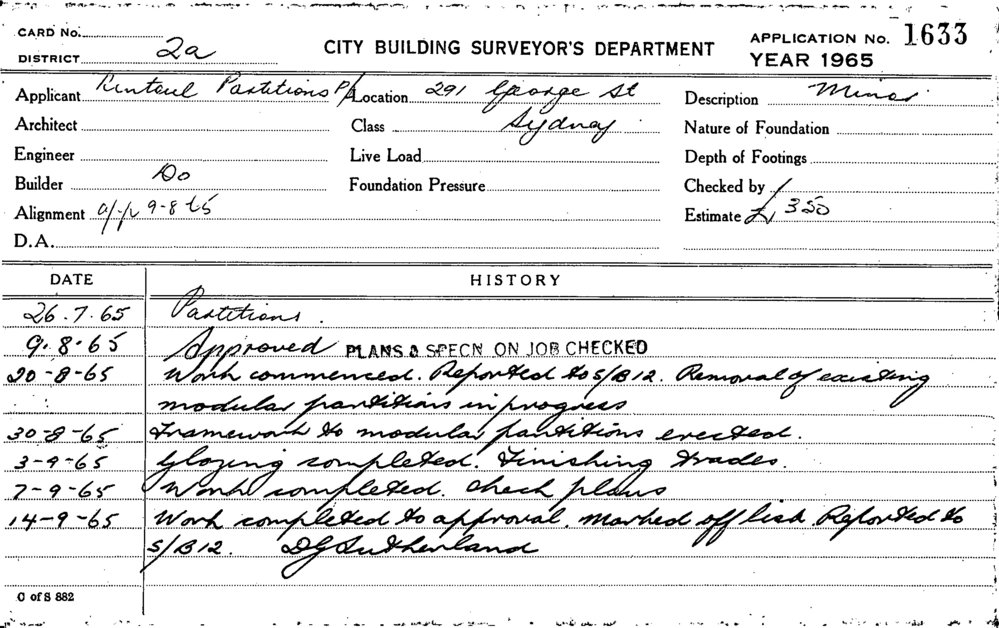 CARD No.
DISTRICT 2a
CITY BUILDING SURVEYOR'S DEPARTMENT
APPLICATION No. 1633
YEAR 1965
Applicant Partitions P/L Location 291 George St Description Minor
Architect Class Sydney Nature of Foundation
Engineer Live Load Depth of Footings
Builder Do Foundation Pressure Checked by
Alignment 9-8-65 Estimate £ 350
D.A.
DATE HISTORY
26.7.65 Partitions.
9.8.65 Approved PLANS & SPECN ON JOB CHECKED
20-8-65 Work commenced. Reported to S/B 12. Removal of existing
modular partitions in progress
30-8-65 Framework to modular partitions erected.
3-9-65 Glazing completed. Finishing trades.
7-9-65 Work completed. Check plans
14-9-65 Work completed to approval. Marked off list. Reported to
S/B 12. DG Sutherland
C of S 882